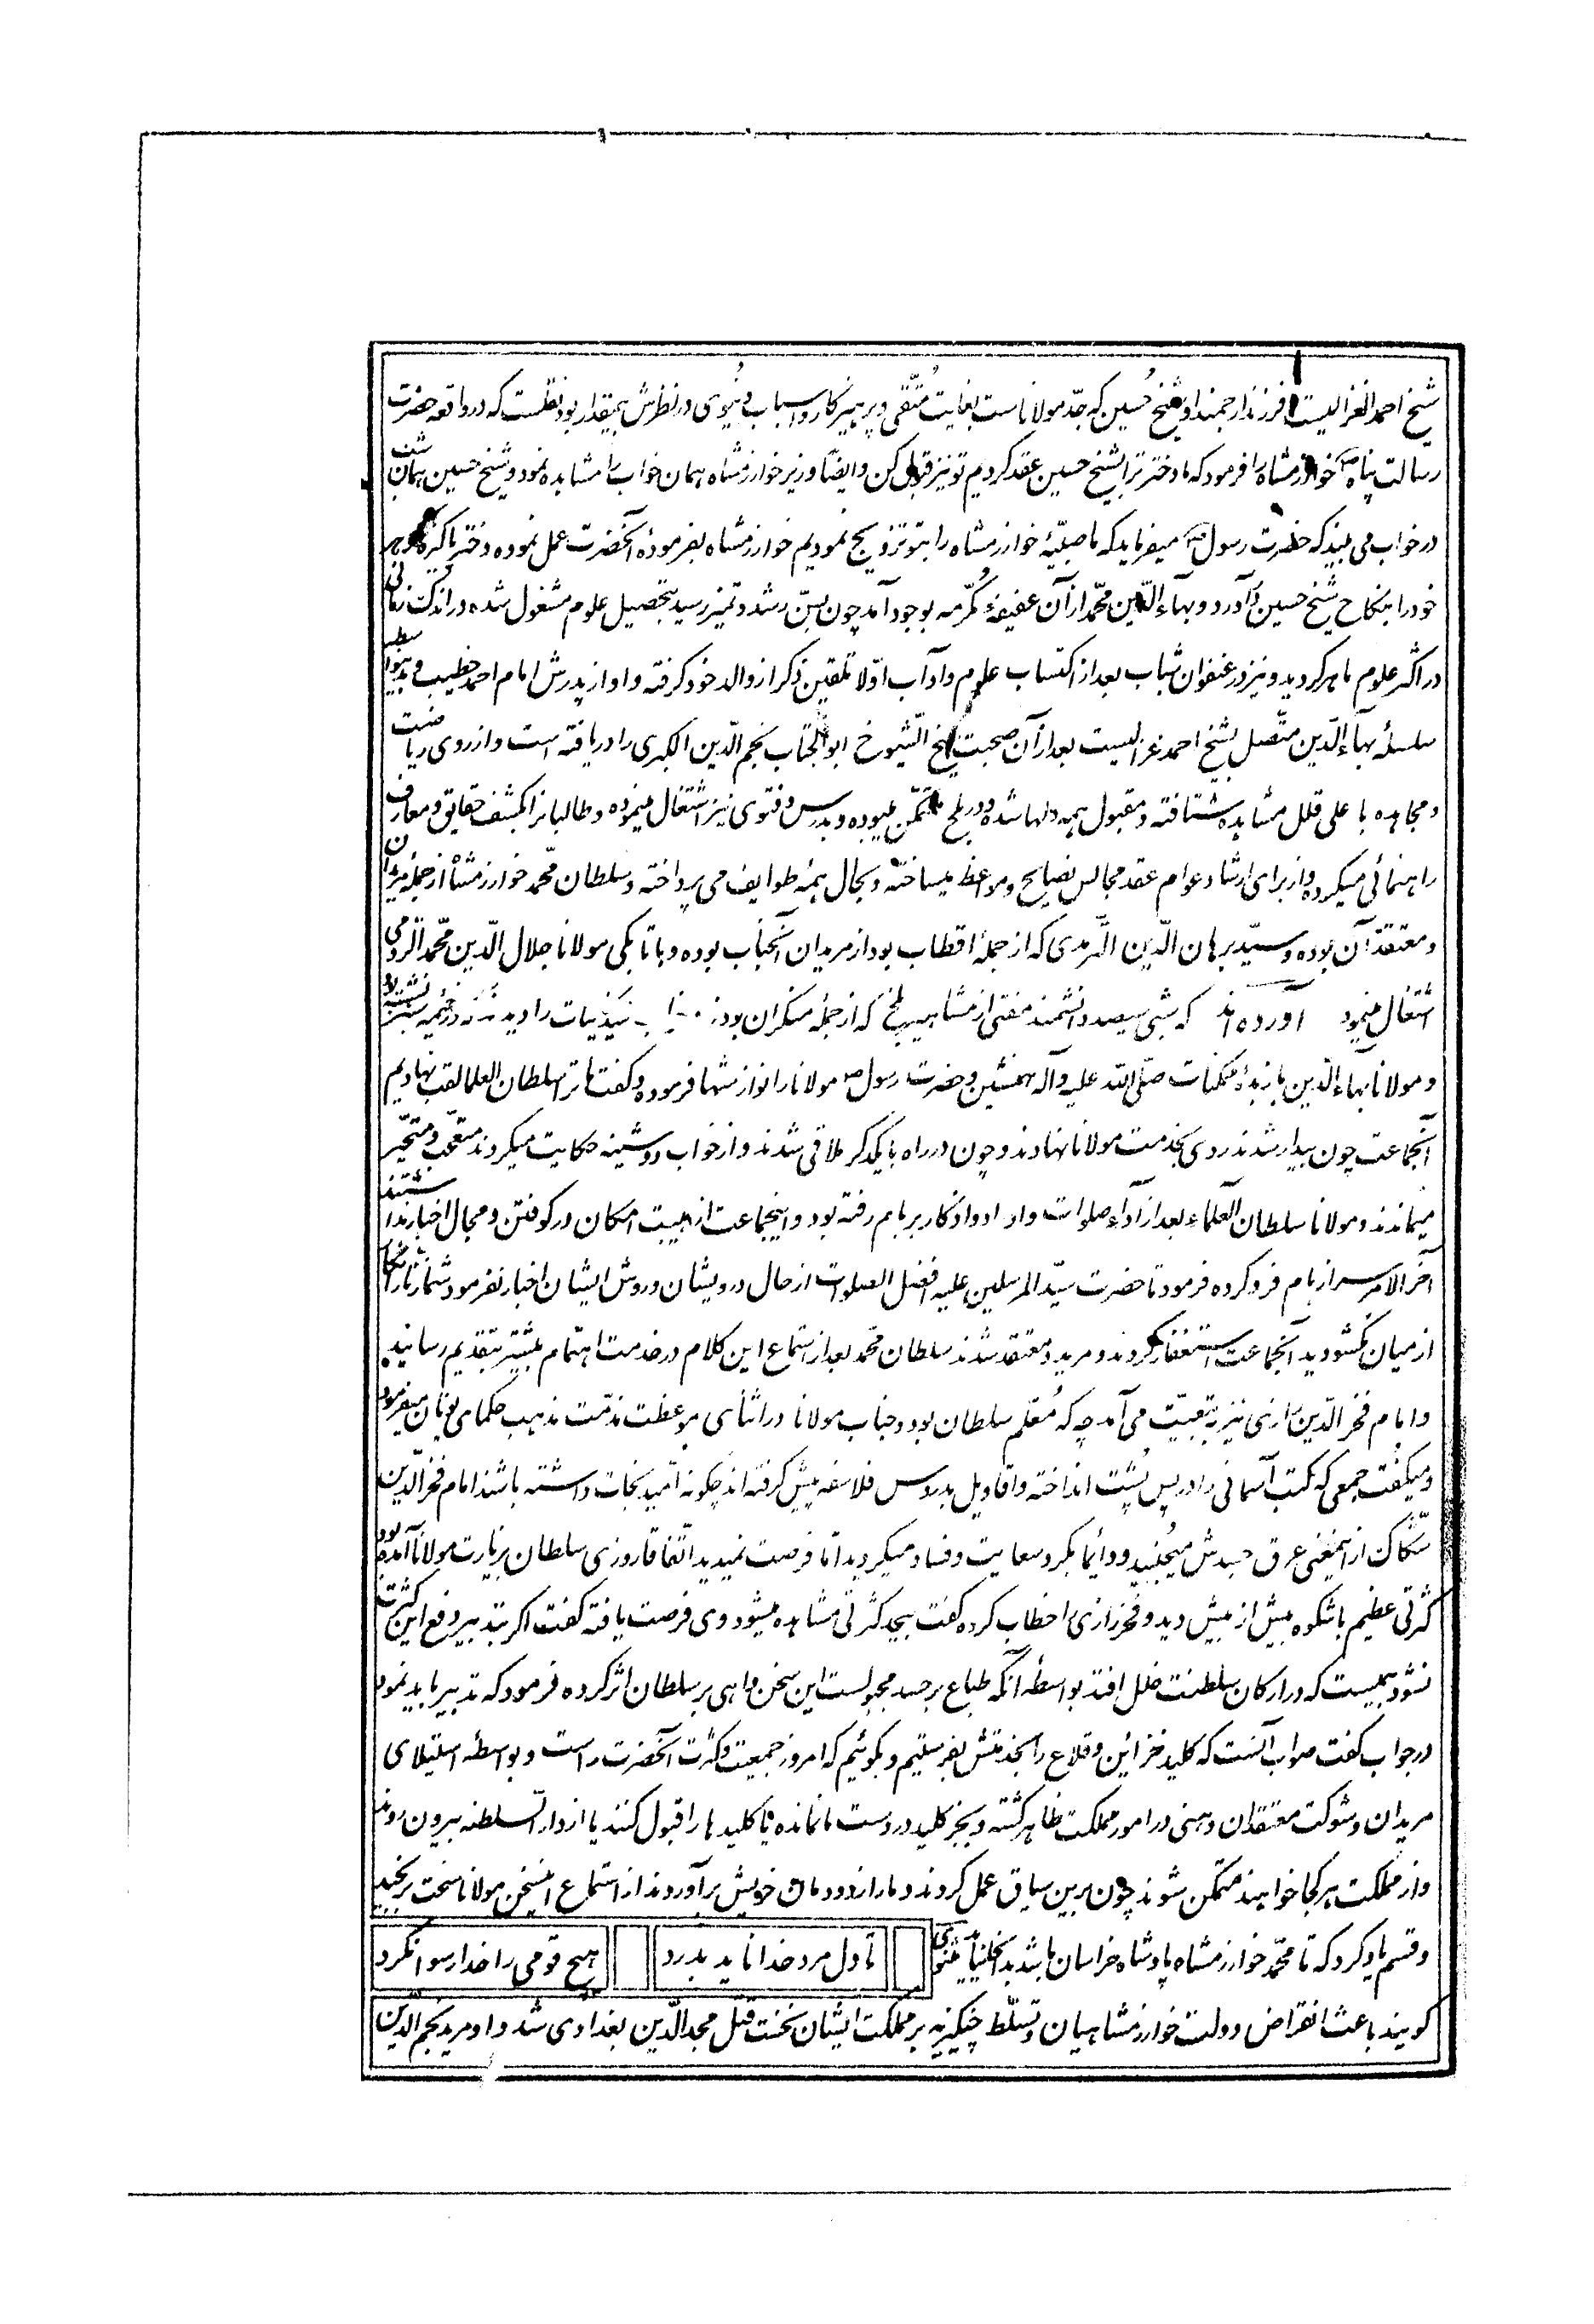 شیخ احمد الغزالیست فرزند ارجمند او شیخ حسین که جدّ مولاناست بغایت متّقی و پرهیزکار و اسباب دنیوی در نظرش بیمقدار بود نقلست که در واقعه حضرت
رسالت پناه خوارزمشاه را فرمود که ما دختر ترا بشیخ حسین عقد کردیم تو نیز قبول کن و ایضا وزیر خوارزمشاه همان خواب را مشاهده نمود و شیخ حسین همان شب
در خواب می بیند که حضرت رسول میفرماید که ما صلبیّهٔ خوارزمشاه را بتو تزویج نمودیم خوارزمشاه بفرمودهٔ آنحضرت عمل نموده دختر پاکیزه گوهر
خود را بنکاح شیخ حسین در آورد و بهاءالدّین محمّد از آن عفیفهٔ مکرّمه بوجود آمد چون بسنّ رشد و تمیز رسید بتحصیل علوم مشغول شده در اندک زمانی
در اکثر علوم ماهر گردید و نیز در عنفوان شباب بعد از اکتساب علوم و آداب اوّلا تلقین ذکر از والد خود گرفته و او از پدرش امام احمد خطیب و بدینواسطه
سلسلهٔ بهاءالدّین متّصل بشیخ احمد غزالیست بعد از آن صحبت شیخ الشّیوخ ابوالجنّاب نجم الدّین الکبری را دریافته است و از روی ریاضت
و مجاهده با علی قلل مشاهده شتافته و مقبول همه دلها شده و در بلخ متمکّن میبوده و بدرس و فتوی نیز اشتغال مینموده و طالبانرا بکشف حقایق و معارف
راهنمائی میکرده و از برای ارشاد عوام عقد مجالس نصایح و مواعظ میساخته و بحال همهٔ طوایف می پرداخته و سلطان محمّد خوارزمشاه از جملهٔ مریدان
و معتقدان بوده و سیّد برهان الدّین التّرمدی که از جملهٔ اقطاب بود از مریدان آنجناب بوده و باتابکی مولانا جلال الدّین محمّد الرّومی
اشتغال مینمود آورده اند که شبی سیصد دانشمند مفتی از مشاهیر بلخ که از جملهٔ منکران بودند را دیدند در خیمه نشسته
و مولانا بهاءالدّین با زبدهٔ ممکنات صلّی الله علیه و آله همنشین و حضرت رسول مولانا را نوازشها فرموده و گفت ما ترا سلطان العلما لقب نهادیم
آنجماعت چون بیدار شدند روی بخدمت مولانا نهادند و چون در راه بایکدگر ملاقی شدند و از خواب دوشینه حکایت میکردند متعجّب و متحیّر
میماندند و مولانا سلطان العلماء بعد از آداء صلوات و اوراد و اذکار بر بام رفته بود و اینجماعت از هیبت امکان در کوفتن و مجال اخبار نداشتند
آخر الامر سر از بام فرو کرده فرمود تا حضرت سیّد المرسلین علیه افضل الصلوات از حال درویشان و روش ایشان اخبار نفرمود شما زنار انکار
از میان نگشودید آنجماعت استغفار کردند و مرید و معتقد شدند سلطان محمّد بعد از استماع این کلام در خدمت اهتمام بیشتر بتقدیم رسانید
و امام فخر الدّین رازی نیز به تبعیّت می آمد چه که مُعلّم سلطان بود و جناب مولانا در اثنای موعظت مذمّت مذهب حکمای یونان میفرمود
و میگفت جمعی که کتب آسمانی را در پس پُشت انداخته و اقاویل مدروس فلاسفه پیش گرفته اند چگونه اُمید نجات داشته باشند امام فخر الدّین
شکّاک از اینمعنی عرق حسدش میُجنبید و دایما بگرد سعایت و فساد میگردید امّا فرصت نمیدید اتّفاقا روزی سلطان بزیارت مولانا آمده بود
کثرتی عظیم با شکوه بیش از پیش دید و فخر رازی را خطاب کرده گفت بیحد کثرتی مشاهده میشود وی فرصت یافته گفت اگر بتدبیر دفع این کثرت
نشود بیمیست که در ارکان سلطنت خلل افتد بواسطهٔ آنکه طباع بر حسد مجبولست این سخن واهی بر سلطان اثر کرده فرمود که تدبیر باید نمود
در جواب گفت صواب آنست که کلید خزائین و قلاع را بخدمتش بفرستیم و بگوئیم که امروز جمعیت و کثرت آنحضرت راست و بواسطهٔ استیلای
مریدان و شوکت معتقدان وهنی در امور مملکت ظاهر گشته و بجز کلید در دست ما نمانده یا کلیدها را قبول کنند یا از دارالسّلطنه بیرون روند
و از مملکت هر کجا خواهند متمکّن شوند چون برین سیاق عمل کردند دمار از دودمان خویش برآوردند از استماع اینسخن مولانا سخت برنجید
و قسم یاد کرد که تا محمّد خوارزمشاه پادشاه خراسان باشد بدانجا نیاید مثنوی تا دل مرد خدا ناید بدرد هیچ قومی را خدا رسوا نکرد
گویند باعث انقراض دولت خوارزمشاهیان و تسلّط چنگیزیه بر مملکت ایشان نخست قتل مجد الدّین بغدادی شد و او مرید نجم الدّین